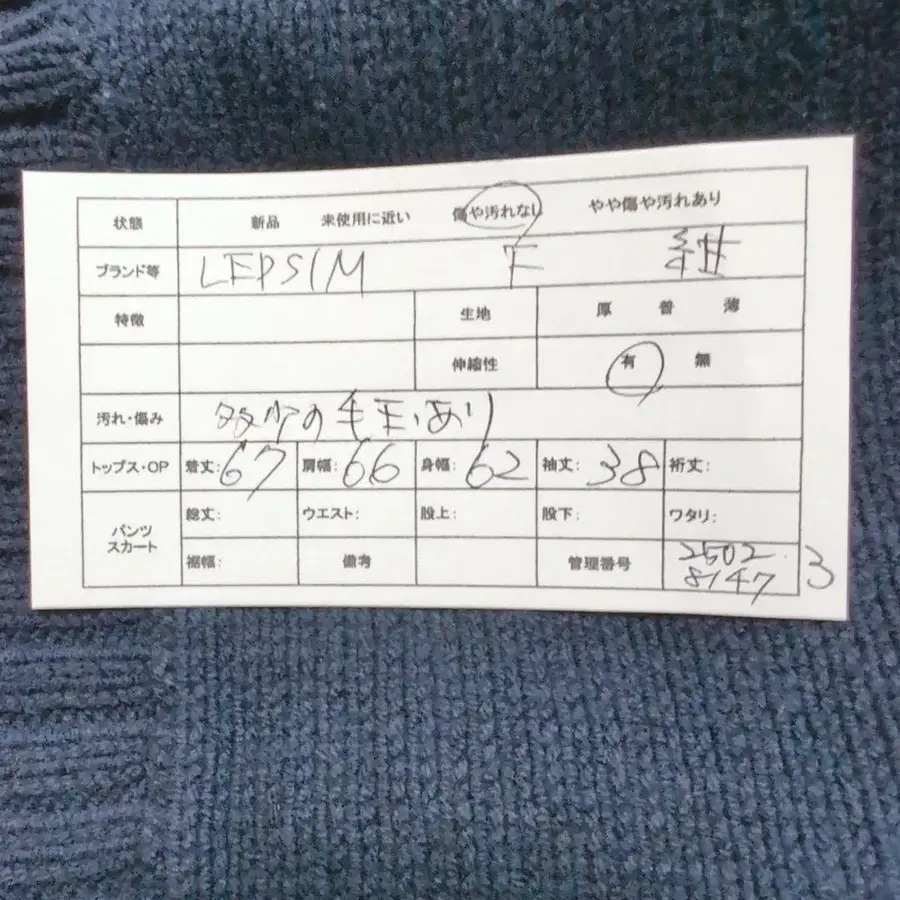 状態 新品 未使用に近い 傷や汚れなし やや傷や汚れあり
ブランド等 LEPSIM F 紺
特徴 生地 厚 普 薄
伸縮性 有 無
汚れ・傷み 多少の毛玉あり
トップス・OP 着丈:67 肩幅:66 身幅:62 袖丈:38 裄丈:
パンツ スカート 総丈: ウエスト: 股上: 股下: ワタリ:
裾幅: 備考 管理番号 2502 8147 3